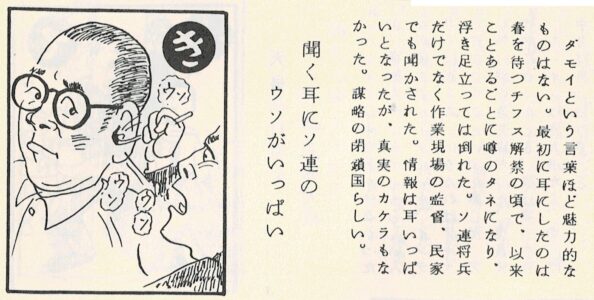 ダモイという言葉ほど魅力的な
ものはない。最初に耳にしたのは
春を待つチフス解禁の頃で、以来
ことあるごとに噂のタネになり、
浮き足立っては倒れた。ソ連将兵
だけでなく作業現場の監督、民家
でも聞かされた。情報は耳いっぱ
いとなったが、真実のカケラもな
かった。謀略の閉鎖国らしい。
聞く耳にソ連の
ウソがいっぱい
き
ウソ
ウソ
ウソ
ウソ